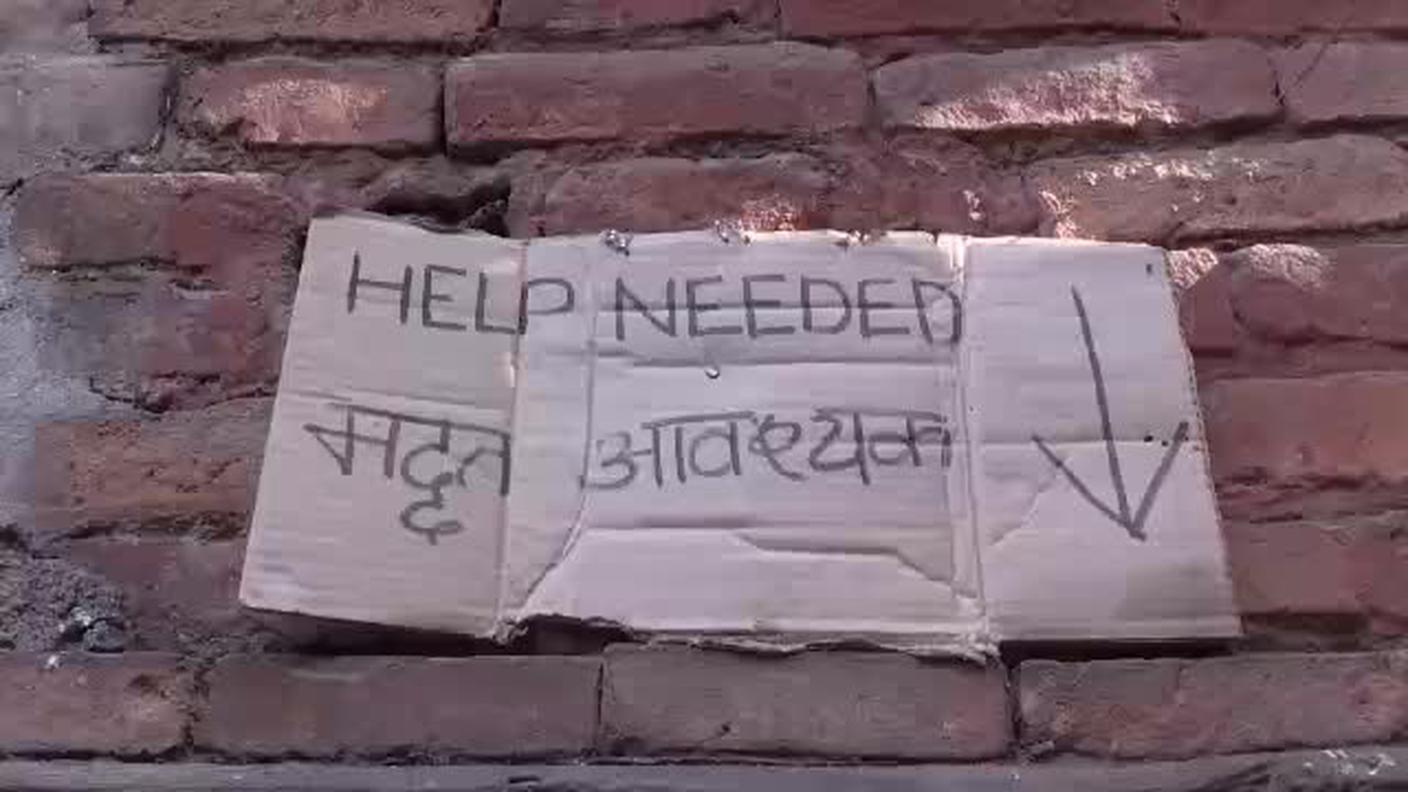 HELP NEEDED
मद्दत आवश्यक